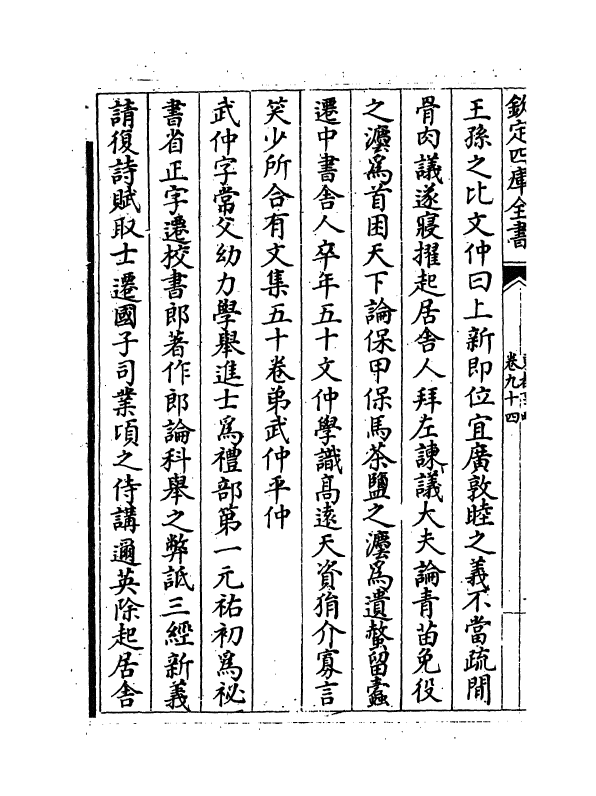 欽定四庫全書
卷九十四
王孫之比文仲曰上新即位宜廣敦睦之義不當疏間
骨肉議遂寢擢起居舍人拜左諌議大夫論青苗免役
之灋為首困天下論保甲保馬茶鹽之灋為遺螫留蠹
遷中書舍人卒年五十文仲學識髙逺天資狷介寡言
笑少所合有文集五十卷弟武仲平仲
武仲字常父幼力學舉進士為禮部第一元祐初為祕
書省正字遷校書郎著作郎論科舉之弊詆三經新義
請復詩賦取士遷國子司業頃之侍講邇英除起居舍